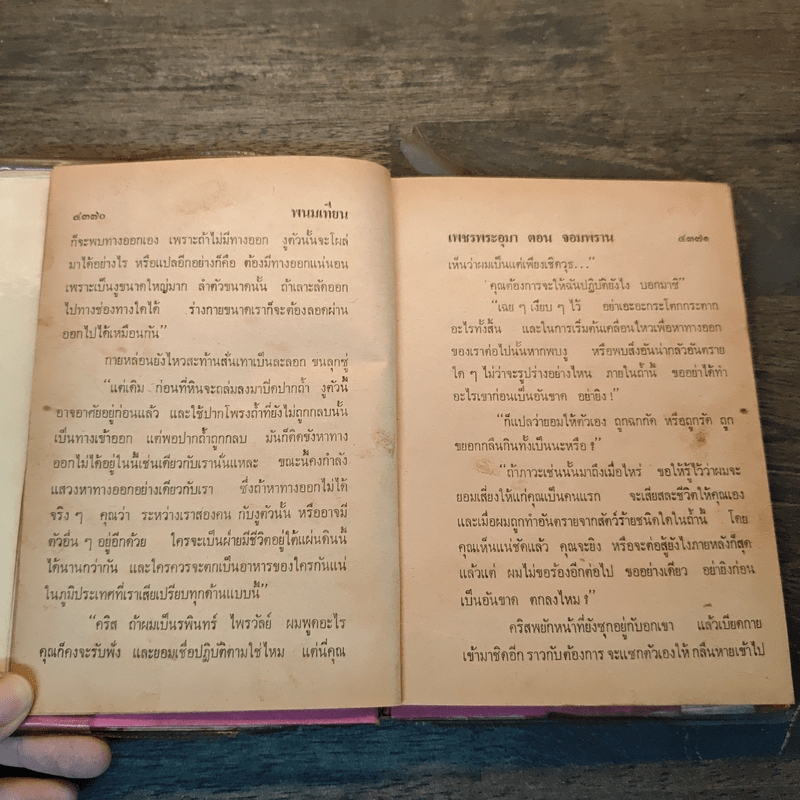 ๔๓๗๐ พนมเทียน
ก็จะพบทางออกเอง เพราะถ้าไม่มีทางออก งูตัวนั้นจะโผล่
มาได้อย่างไร หรือแปลอีกอย่างก็คือ ต้องมีทางออกแน่นอน
เพราะเป็นงูขนาดใหญ่มาก ลำตัวขนาดนั้น ถ้าเลาะลัดออก
ไปทางช่องทางใดได้ ร่างกายขนาดเราก็จะต้องลอดผ่าน
ออกไปได้เหมือนกัน”
กายหล่อนยังไหวสะท้านสั่นเทาเป็นละลอก ขนลุกซู่
“แต่เดิม ก่อนที่หินจะถล่มลงมาปิดปากถ้ำ งูตัวนี้
อาจอาศัยอยู่ก่อนแล้ว และใช้ปากโพรงถ้ำที่ยังไม่ถูกกลบนั้น
เป็นทางเข้าออก แต่พอปากถ้ำถูกกลบ มันก็ติดขังหาทาง
ออกไม่ได้อยู่ในนี้เช่นเดียวกับเรานั่นแหละ ขณะนี้คงกำลัง
แสวงหาทางออกอย่างเดียวกับเรา ซึ่งถ้าหาทางออกไม่ได้
จริง ๆ คุณว่า ระหว่างเราสองคน กับงูตัวนั้น หรืออาจมี
ตัวอื่น ๆ อยู่อีกด้วย ใครจะเป็นฝ่ายมีชีวิตอยู่ใต้แผ่นดินนี้
ได้นานกว่ากัน และใครควรจะตกเป็นอาหารของใครกันแน่
ในภูมิประเทศที่เราเสียเปรียบทุกด้านแบบนี้”
“คริส ถ้าผมเป็นรพินทร์ ไพรวัลย์ ผมพูดอะไร
คุณก็คงจะรับฟัง และยอมเชื่อปฎิบัติตามใช่ไหม แต่นี่คุณ
เพชรพระอุมา ตอน จอมพราน ๔๓๗๑
เห็นว่าผมเป็นแต่เพียงเชิดวุธ...”
“คุณต้องการจะให้ฉันปฏิบัติยังไง บอกมาซิ”
“เฉย ๆ เงียบ ๆ ไว้ อย่าเอะอะกระโตกกระตาก
อะไรทั้งสิ้น และในการเริ่มต้นเคลื่อนไหวเพื่อหาทางออก
ของเราต่อไปนั้นหากพบงู หรือพบสิ่งอันน่ากลัวอันตราย
ใด ๆ ไม่ว่าจะรูปร่างอย่างไหน ภายในถ้ำนี้ ขออย่าได้ทำ
อะไรเขาก่อนเป็นอันขาด อย่ายิง !”
“ก็แปลว่ายอมให้ตัวเอง ถูกฉกกัด หรือถูกรัด ถูก
ขยอกกลืนกินทั้งเป็นนะหรือ ?”
“ถ้าภาวะเช่นนั้นมาถึงเมื่อไหร่ ขอให้รู้ไว้ว่าผมจะ
ยอมเสี่ยงให้แก่คุณเป็นคนแรก จะเสียสละชีวิตให้คุณเอง
และเมื่อผมถูกทำอันตรายจากสัตว์ร้ายชนิดใดในถ้ำนี้ โดย
คุณเห็นแน่ชัดแล้ว คุณจะยิง หรือจะต่อสู้ยังไงภายหลังก็สุด
แล้วแต่ ผมไม่ขอร้องอีกต่อไป ขออย่างเดียว อย่ายิงก่อน
เป็นอันขาด ตกลงไหม ?”
คริสพยักหน้าที่ยังซุกอยู่กับอกเขา แล้วเบียดกาย
เข้ามาชิดอีก ราวกับต้องการ จะแซกตัวเองให้ กลืนหายเข้าไป